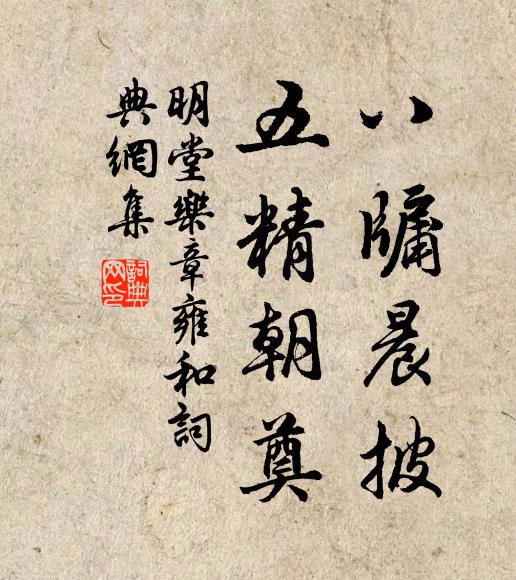 八牖晨披
五精朝奠
明堂樂章雍和詞
典網集
詞典
网印